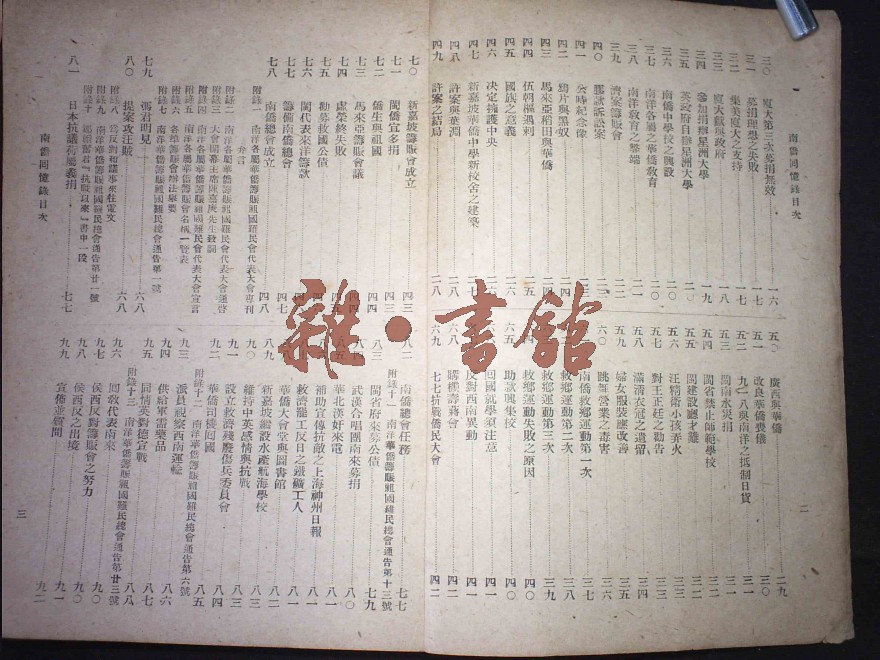 南僑回憶錄目次
二
三〇 廈大第三次募捐無效 一六
三一 募捐理想之失敗 一七
三二 集美廈大之支持 一七
三三 廈大獻與政府 一八
三四 參加捐辦星洲大學 一九
三五 英政府自辦星洲大學 二〇
三六 南僑中學校之興設 二〇
三七 南洋各屬之華僑教育 二一
三八 南洋教育之弊端 二二
三九 濟案籌賑會
四〇 膠款訴訟案
四一 公時紀念像
四二 鴉片與黑奴
四三 馬來亞稻田與華僑 二四
四四 伍朝樞遇刺
四五 國族之意義
四六 決定擁護中央
四七 新嘉坡華僑中學新校舍之建築
四八 許案與葉淵 二八
四九 許案之結局 二八
五〇 廣西與華僑 二九
五一 改良華僑喪儀 三〇
五二 九一八與南洋之抵制日貨 三〇
五三 閩南水災捐 三一
五四 閩省禁止師範學校
五五 閩建設廳才難
五六 汪精衛小孩弄火 三三
五七 對王正廷之勸告 三四
五八 滿清衣冠之遺留 三四
五九 婦女服裝應改善 三五
六〇 跳舞營業之毒害 三六
南僑救鄉運動第一次 三七
救鄉運動第二次 三八
救鄉運動第三次 三九
救鄉運動失敗之原因 四〇
六五 助款興集校 四〇
回國就學須注意 四一
反對西南異動 四一
六八 購機壽蔣會 四二
六九 七七抗戰僑民大會 四二
七〇 新嘉坡籌賑會成立 四三
七一 閩僑宜多捐 四三
七二 僑生與祖國 四四
七三 馬來亞籌賑會議 四四
七四 虛榮終失敗
七五 勸募救國公債
七六 閩代表來洋籌款
七七 籌備南僑總會 四七
七八 南僑總會成立 四八
附錄一 南洋各屬華僑籌賑祖國難民會代表大會專刊
弁言
附錄二 南洋各屬華僑籌賑祖國難民會代表大會通啓
附錄三 大會開幕主席陳嘉庚先生致詞
附錄四 南洋各屬華僑籌賑祖國難民會代表大會宣言
附錄五 南洋各屬華僑籌賑會名稱一覽表
附錄六 各埠籌賑會辦法舉要
附錄七 南洋華僑籌賑祖國難民總會通告第一號
七九 弼君明見 六八
八〇 提案攻汪賊 六八
附錄八 爲反對和議事來往電文
附錄九 南洋華僑籌賑祖國難民總會通告第廿一號
附錄十 鄒韜奮君『抗戰以來』書中一段
八一 日本抗議荷屬義捐 七七
南僑總會任務 七七
附錄十一 南洋華僑籌賑祖國難民總會通告第十三號
八三 閩省府來募公債 七九
武漢合唱團南來募捐 八〇
華北漢奸來電 八一
補助宣傳抗敵之上海神州日報 八一
救濟罷工反日之鐵礦工人
華僑大會堂與圖書館
八九 新嘉坡繼設水產航海學校 八二
九〇 維持中英感情與抗戰 八三
九一 設立救濟殘廢傷兵委員會 八三
九二 華僑司機回國 八四
附錄十二 南洋華僑籌賑祖國難民總會通告第六號 八五
九三 派員視察西南運輸
九四 供給軍需藥品 八六
九五 同情英對德宣戰 八七
附錄十三 南洋華僑籌賑祖國難民總會通告第廿三號 八八
九六 回敎代表南來
九七 侯西反對籌賑會之努力 九〇
九八 侯西反之出境 九〇
九九 宣佈並質問 九一
南僑回憶錄目次
三
雜·書館